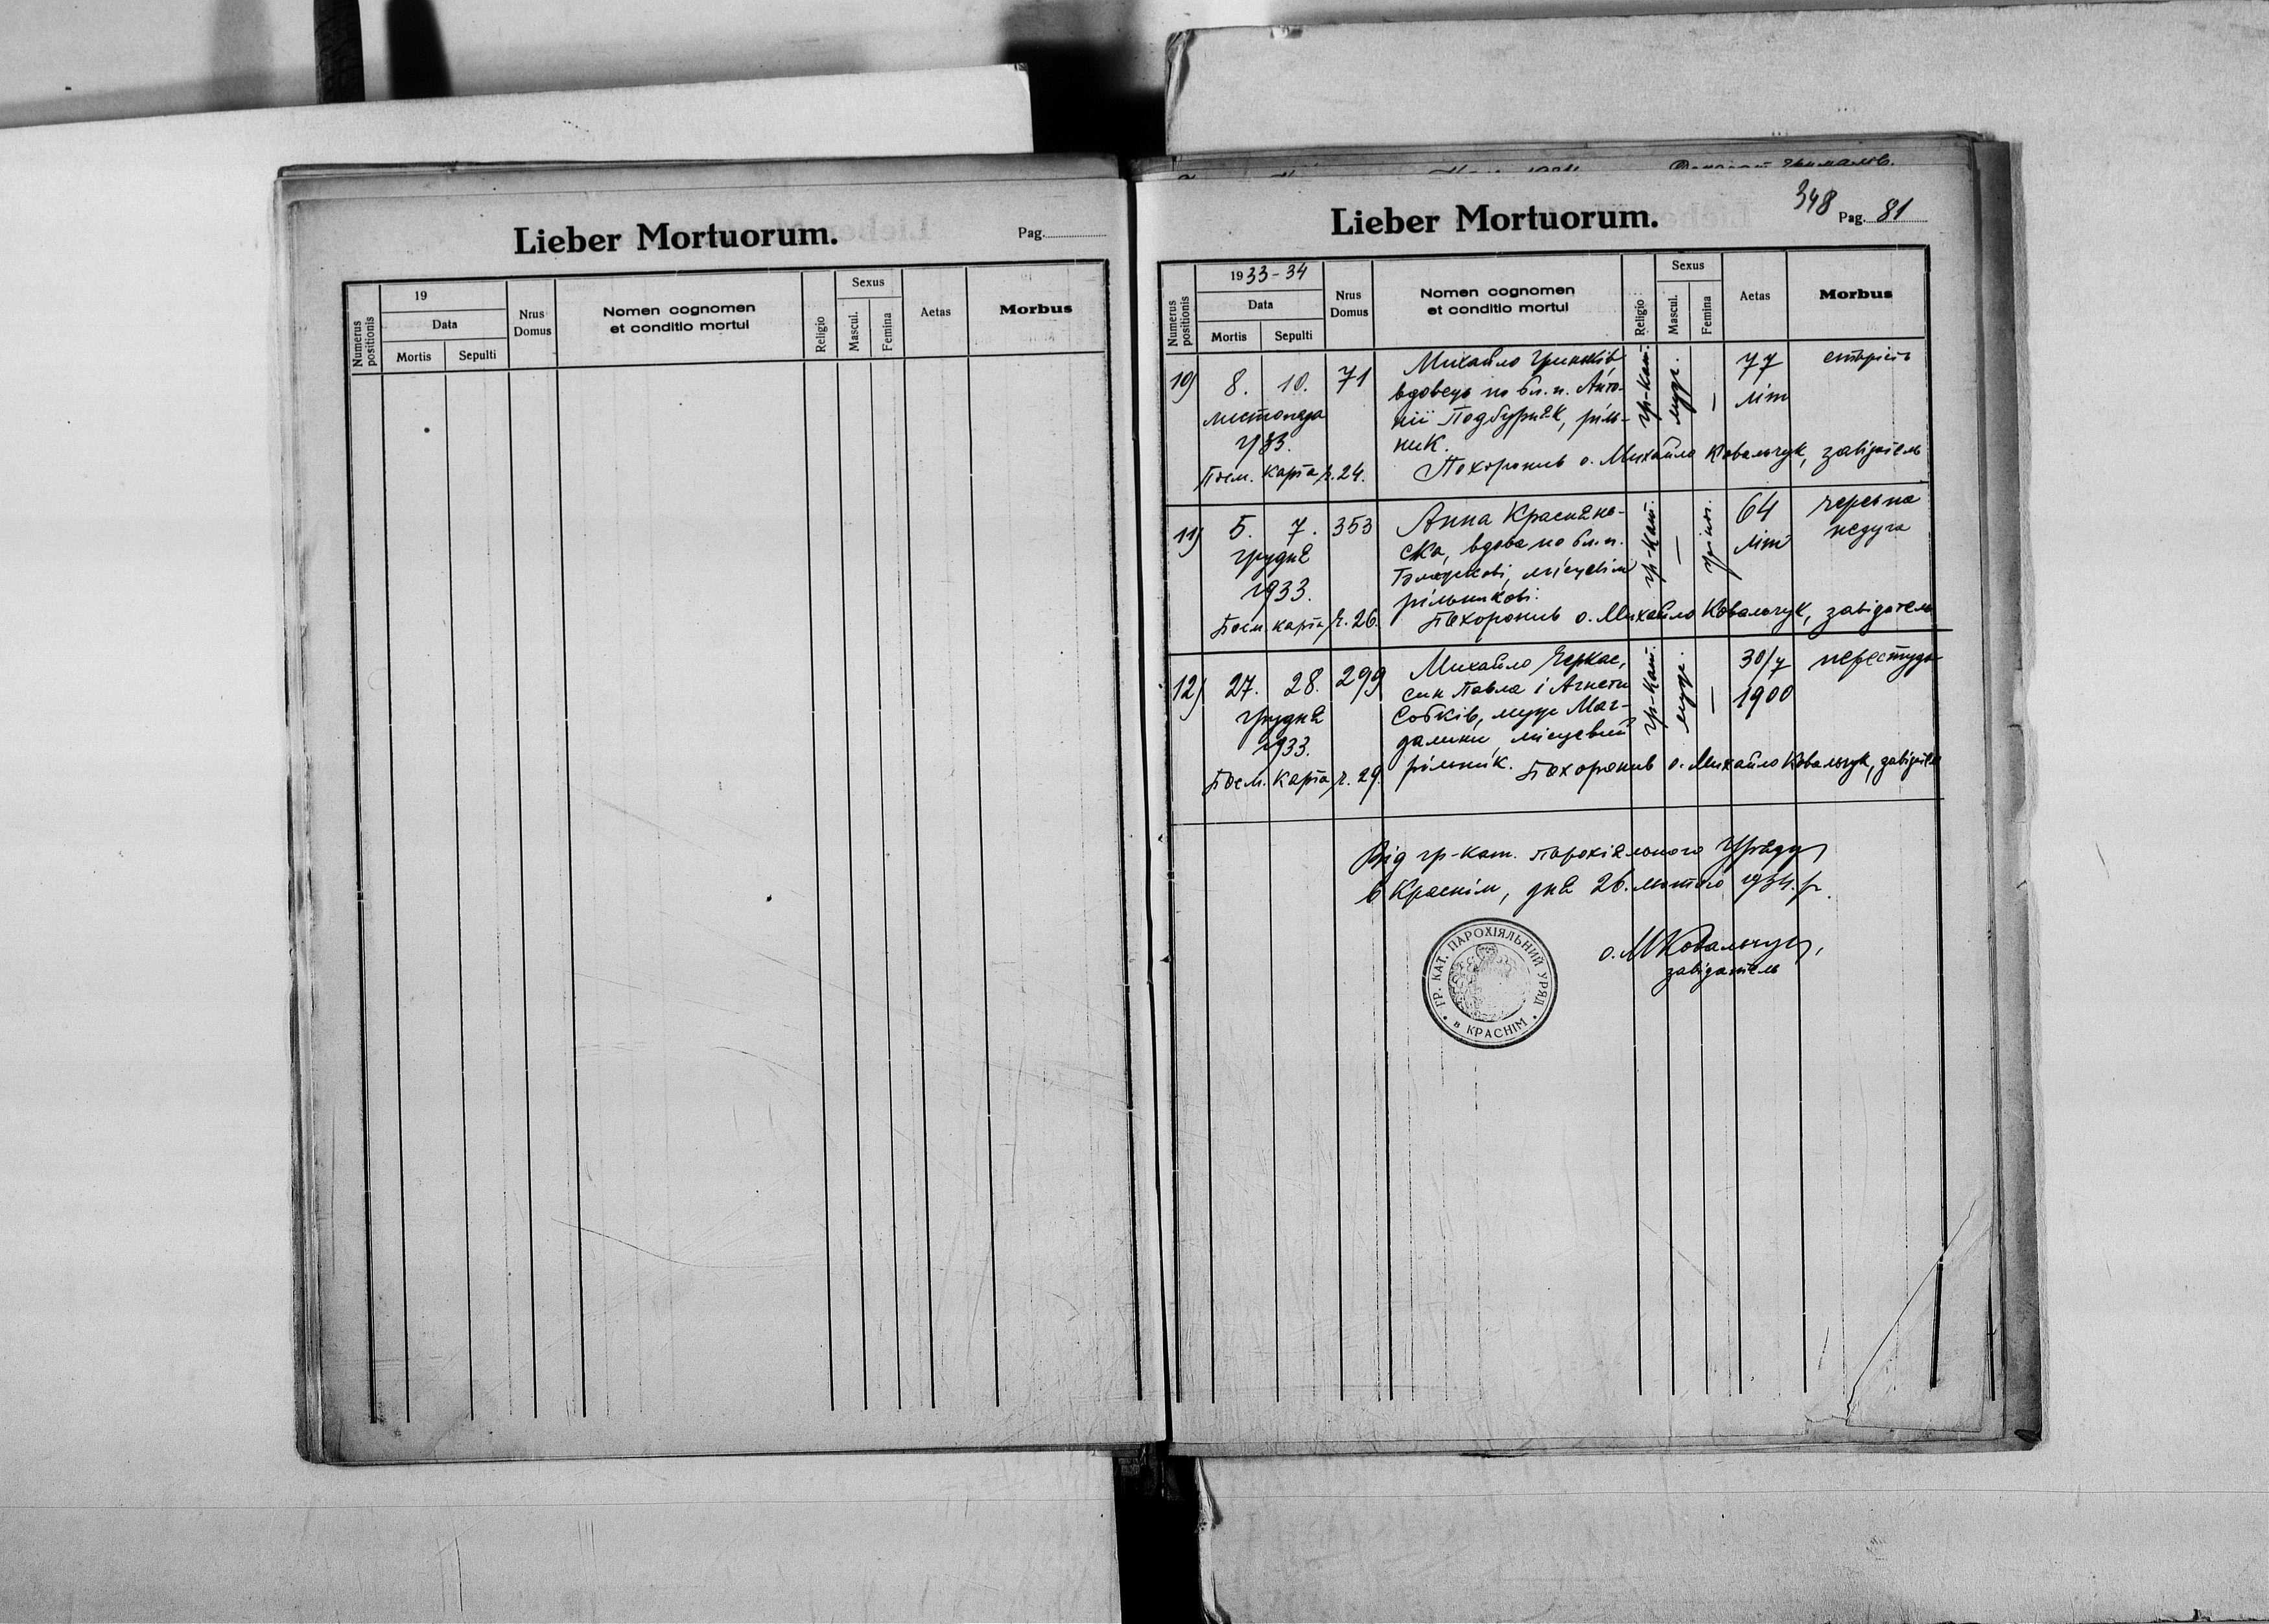 Lieber Mortuorum.
Pag.
Numerus positionis
19
Data
Mortis
Sepulti
Nrus Domus
Nomen cognomen
et conditio mortui
Religio
Sexus
Mascul.
Femina
Aetas
Morbus
348
Lieber Mortuorum.
Pag. 81
Numerus positionis
1933-34
Data
Mortis
Sepulti
Nrus Domus
Nomen cognomen
et conditio mortui
Religio
Sexus
Mascul.
Femina
Aetas
Morbus
10) 8. 10. 71 Михайло Гринків гр-кат. муж. — 77 старість
вдовець по бл. п. Анто- літ
листопада нії Подбурняк,ріль-
933. ник.
Посм. карта ч. 24. Похоронив о. Михайло Ковальчук, завідатель
11) 5. 7. 353 Анна Красаня- гр-кат. — 64 черевна
грудня ска, вдова по бл. п. літ недуга
1933. місцевім
рільникові.
Посм. карта ч. 26. Похоронив о. Михайло Ковальчук, завідатель
12) 27. 28. 299 Михайло Черкас, гр-кат. муж. — 30/7 перестуда
син Павла і Агнети 1900
грудня Собків, муж Маг-
1933. далини, місцевий
рільник. Похоронив о. Михайло Ковальчук, завідатель
Посм. карта ч. 29.
Від гр-кат. парохіяльного Уряду
в Краснім, дня 26. лютого 1934. р.
ГР. КАТ. ПАРОХІЯЛЬНИЙ УРЯД
в КРАСНІМ
о. М Ковальчук,
завідатель